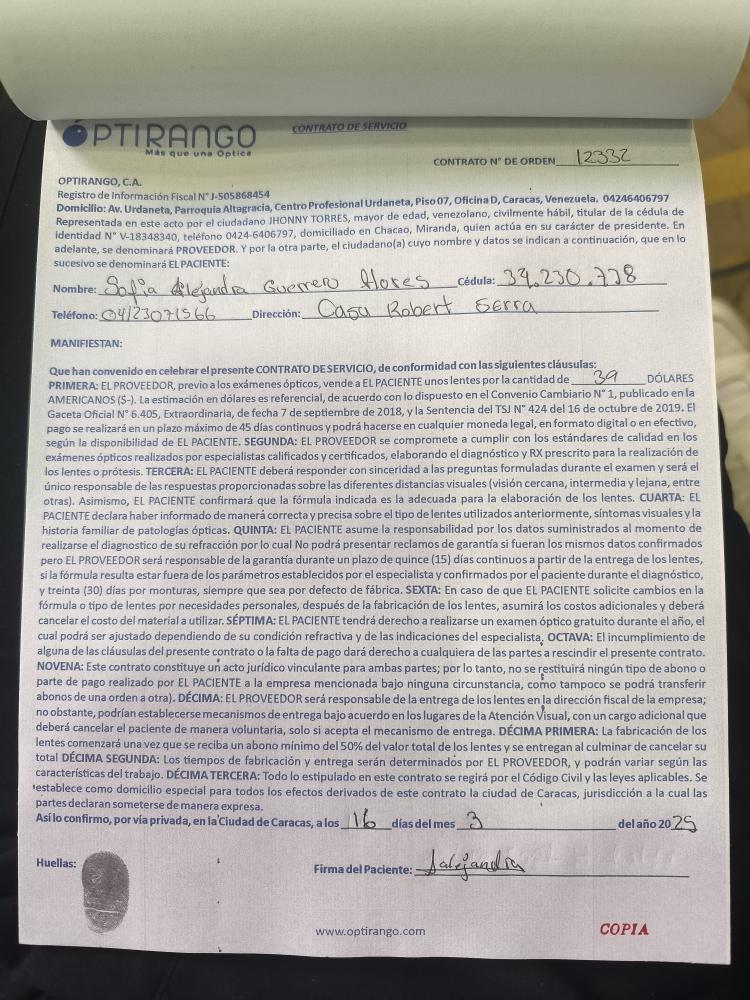 OPTIRANGO
Más que una Optica
CONTRATO DE SERVICIO
CONTRATO N° DE ORDEN 12332
OPTIRANGO, C.A.
Registro de Información Fiscal N° J-505868454
Domicilio: Av. Urdaneta, Parroquia Altagracia, Centro Profesional Urdaneta, Piso 07, Oficina D, Caracas, Venezuela. 04246406797
Representada en este acto por el ciudadano JHONNY TORRES, mayor de edad, venezolano, civilmente hábil, titular de la cédula de
Identidad N° V-18348340, teléfono 0424-6406797, domiciliado en Chacao, Miranda, quien actúa en su carácter de presidente. En
adelante, se denominará PROVEEDOR. Y por la otra parte, el ciudadano(a) cuyo nombre y datos se indican a continuación, que en lo
sucesivo se denominará EL PACIENTE:
Nombre: Sofia Alejandra Guerrero flores Cédula: 34.230.738
Teléfono: 04123071566 Dirección: Casa Robert Serra
MANIFIESTAN:
Que han convenido en celebrar el presente CONTRATO DE SERVICIO, de conformidad con las siguientes cláusulas:
PRIMERA: EL PROVEEDOR, previo a los exámenes ópticos, vende a EL PACIENTE unos lentes por la cantidad de 39 DÓLARES
AMERICANOS ($-). La estimación en dólares es referencial, de acuerdo con lo dispuesto en el Convenio Cambiario N° 1, publicado en la
Gaceta Oficial N° 6.405, Extraordinaria, de fecha 7 de septiembre de 2018, y la Sentencia del TSJ N° 424 del 16 de octubre de 2019. El
pago se realizará en un plazo máximo de 45 días continuos y podrá hacerse en cualquier moneda legal, en formato digital o en efectivo,
según la disponibilidad de EL PACIENTE. SEGUNDA: EL PROVEEDOR se compromete a cumplir con los estándares de calidad en los
exámenes ópticos realizados por especialistas calificados y certificados, elaborando el diagnóstico y RX prescrito para la realización de
los lentes o prótesis. TERCERA: EL PACIENTE deberá responder con sinceridad a las preguntas formuladas durante el examen y será el
único responsable de las respuestas proporcionadas sobre las diferentes distancias visuales (visión cercana, intermedia y lejana, entre
otras). Asimismo, EL PACIENTE confirmará que la fórmula indicada es la adecuada para la elaboración de los lentes. CUARTA: EL
PACIENTE declara haber informado de manera correcta y precisa sobre el tipo de lentes utilizados anteriormente, síntomas visuales y la
historia familiar de patologías ópticas. QUINTA: EL PACIENTE asume la responsabilidad por los datos suministrados al momento de
realizarse el diagnostico de su refracción por lo cual No podrá presentar reclamos de garantía si fueran los mismos datos confirmados
pero EL PROVEEDOR será responsable de la garantía durante un plazo de quince (15) días continuos a partir de la entrega de los lentes,
si la fórmula resulta estar fuera de los parámetros establecidos por el especialista y confirmados por el paciente durante el diagnóstico,
y treinta (30) días por monturas, siempre que sea por defecto de fábrica. SEXTA: En caso de que EL PACIENTE solicite cambios en la
fórmula o tipo de lentes por necesidades personales, después de la fabricación de los lentes, asumirá los costos adicionales y deberá
cancelar el costo del material a utilizar. SÉPTIMA: EL PACIENTE tendrá derecho a realizarse un examen óptico gratuito durante el año, el
cual podrá ser ajustado dependiendo de su condición refractiva y de las indicaciones del especialista. OCTAVA: El incumplimiento de
alguna de las cláusulas del presente contrato o la falta de pago dará derecho a cualquiera de las partes a rescindir el presente contrato.
NOVENA: Este contrato constituye un acto jurídico vinculante para ambas partes; por lo tanto, no se restituirá ningún tipo de abono o
parte de pago realizado por EL PACIENTE a la empresa mencionada bajo ninguna circunstancia, como tampoco se podrá transferir
abonos de una orden a otra). DÉCIMA: EL PROVEEDOR será responsable de la entrega de los lentes en la dirección fiscal de la empresa;
no obstante, podrían establecerse mecanismos de entrega bajo acuerdo en los lugares de la Atención Visual, con un cargo adicional que
deberá cancelar el paciente de manera voluntaria, solo si acepta el mecanismo de entrega. DÉCIMA PRIMERA: La fabricación de los
lentes comenzará una vez que se reciba un abono mínimo del 50% del valor total de los lentes y se entregan al culminar de cancelar su
total DÉCIMA SEGUNDA: Los tiempos de fabricación y entrega serán determinados por EL PROVEEDOR, y podrán variar según las
características del trabajo. DÉCIMA TERCERA: Todo lo estipulado en este contrato se regirá por el Código Civil y las leyes aplicables. Se
establece como domicilio especial para todos los efectos derivados de este contrato la ciudad de Caracas, jurisdicción a la cual las
partes declaran someterse de manera expresa.
Así lo confirmo, por vía privada, en la Ciudad de Caracas, a los 16 días del mes 3 del año 2025
Huellas:
Firma del Paciente: Salejandra
www.optirango.com
COPIA